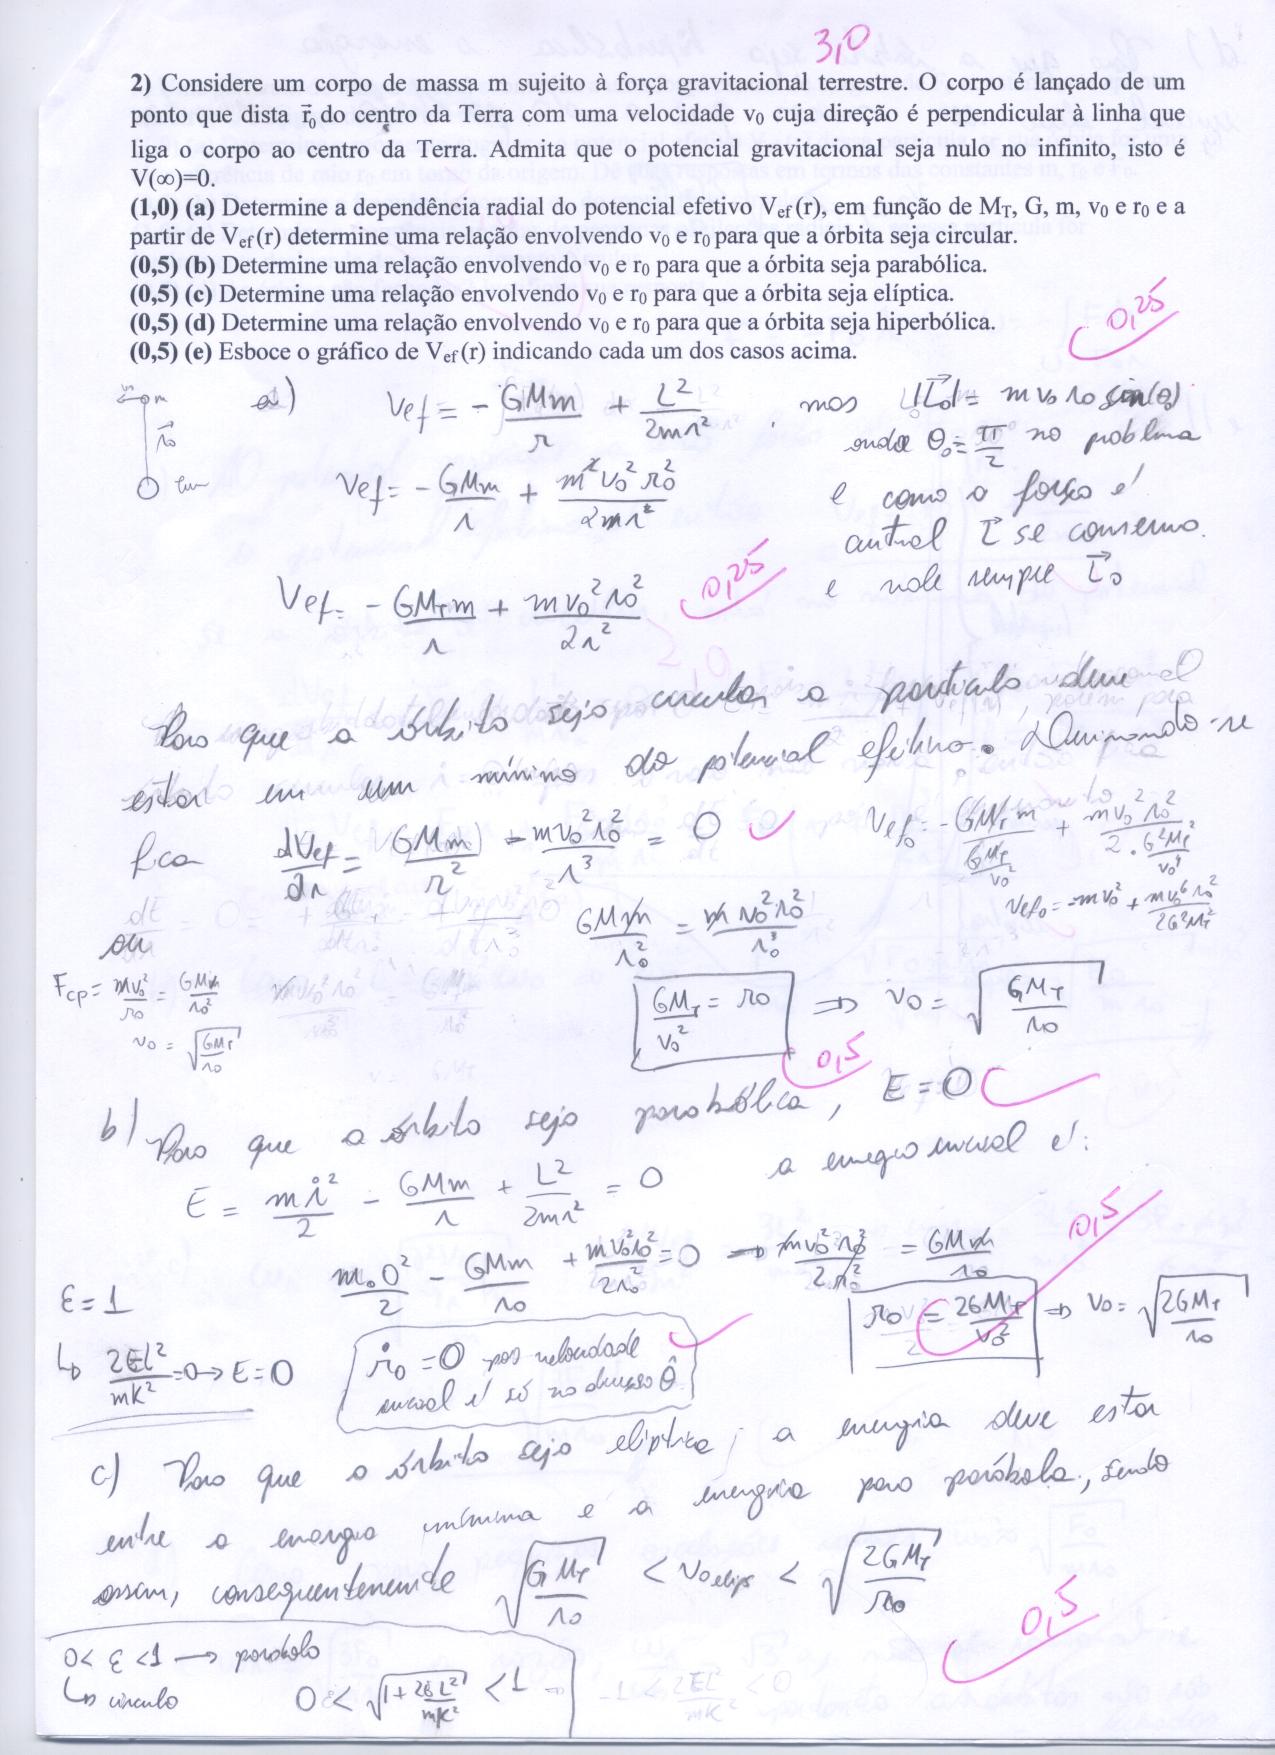 3,0
2) Considere um corpo de massa m sujeito à força gravitacional terrestre. O corpo é lançado de um
ponto que dista r⃗₀ do centro da Terra com uma velocidade v₀ cuja direção é perpendicular à linha que
liga o corpo ao centro da Terra. Admita que o potencial gravitacional seja nulo no infinito, isto é
V(∞)=0.
(1,0) (a) Determine a dependência radial do potencial efetivo V_ef(r), em função de M_T, G, m, v₀ e r₀ e a
partir de V_ef(r) determine uma relação envolvendo v₀ e r₀ para que a órbita seja circular.
(0,5) (b) Determine uma relação envolvendo v₀ e r₀ para que a órbita seja parabólica.
(0,5) (c) Determine uma relação envolvendo v₀ e r₀ para que a órbita seja elíptica.
(0,5) (d) Determine uma relação envolvendo v₀ e r₀ para que a órbita seja hiperbólica.
(0,5) (e) Esboce o gráfico de V_ef(r) indicando cada um dos casos acima.
0,25
m
r⃗₀
a) Vef = - GMm/r + L²/2mr² , mas |L⃗₀| = m v₀ r₀ sin(θ₀)
onde θ₀ = π/2 no problema
Vef = - GMm/r + m²v₀²r₀²/2mr²
e como a força é
central L⃗ se conserva.
e vale sempre L⃗₀
Vef = - GM_Tm/r + mv₀²r₀²/2r²
0,25
Para que a órbita seja circular, a partícula deve
estar em um mínimo do potencial efetivo. Derivando-se
fica dVef/dr = GMm/r² - mv₀²r₀²/r³ = 0
Vef₀ = - GM_Tm/(GM_T/v₀²) + mv₀²r₀²/(2·G²M_T²/v₀⁴)
Vef₀ = -mv₀² + mv₀⁶r₀²/2G²M_T²
GMm/r₀² = mv₀²r₀²/r₀³
ou
Fcp = mv₀²/r₀ = GMm/r₀²
v₀ = √(GM_T/r₀)
GM_T/v₀² = r₀ ⇒ v₀ = √(GM_T/r₀)
0,5
b) Para que a órbita seja parabólica, E = 0
a energia inicial é:
E = mṙ²/2 - GMm/r + L²/2mr² = 0
m.0²/2 - GMm/r₀ + mv₀²r₀²/2r₀² = 0 → mv₀²r₀²/2r₀² = GMm/r₀
0,5
ε = 1
↳ 2EL²/mK² = 0 → E = 0
ṙ₀ = 0 pois velocidade
inicial é só na direção θ̂
r₀ = 2GM_T/v₀² ⇒ v₀ = √(2GM_T/r₀)
c) Para que a órbita seja elíptica, a energia deve estar
entre a energia mínima e a energia para parábola, sendo
assim, consequentemente √(GM_T/r₀) < v₀elips < √(2GM_T/r₀)
0,5
0 < ε < 1 → parábola
↳ círculo 0 < √(1+2EL²/mK²) < 1 ⇒ -1 < 2EL²/mK² < 0